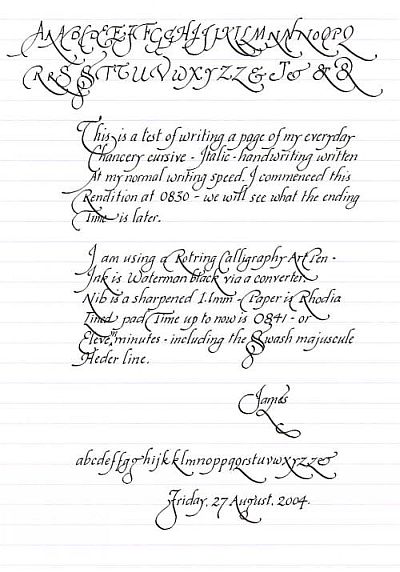 A A A B C D E E F F G G H I J J K I L M N N N O O P Q
R R S S T T U V W X Y Z Z & J & & &
This is a test of writing a page of my everyday
Chancery cursive - Italic - handwriting written
At my normal writing speed. I commenced this
Rendition at 0830 - we will see what the ending
Time is later.
I am using a Rotring Calligraphy Art Pen -
Ink is Waterman black via a converter.
Nib is a sharpened 1.1mm - Paper is Rhodia
Lined pad. Time up to now is 0841 - or
Eleven minutes - including the Swash majuscule
Heder line.
James
abcdeffgghijkklmnoppqqrstuvwxyzz&
Friday, 27 August, 2004.